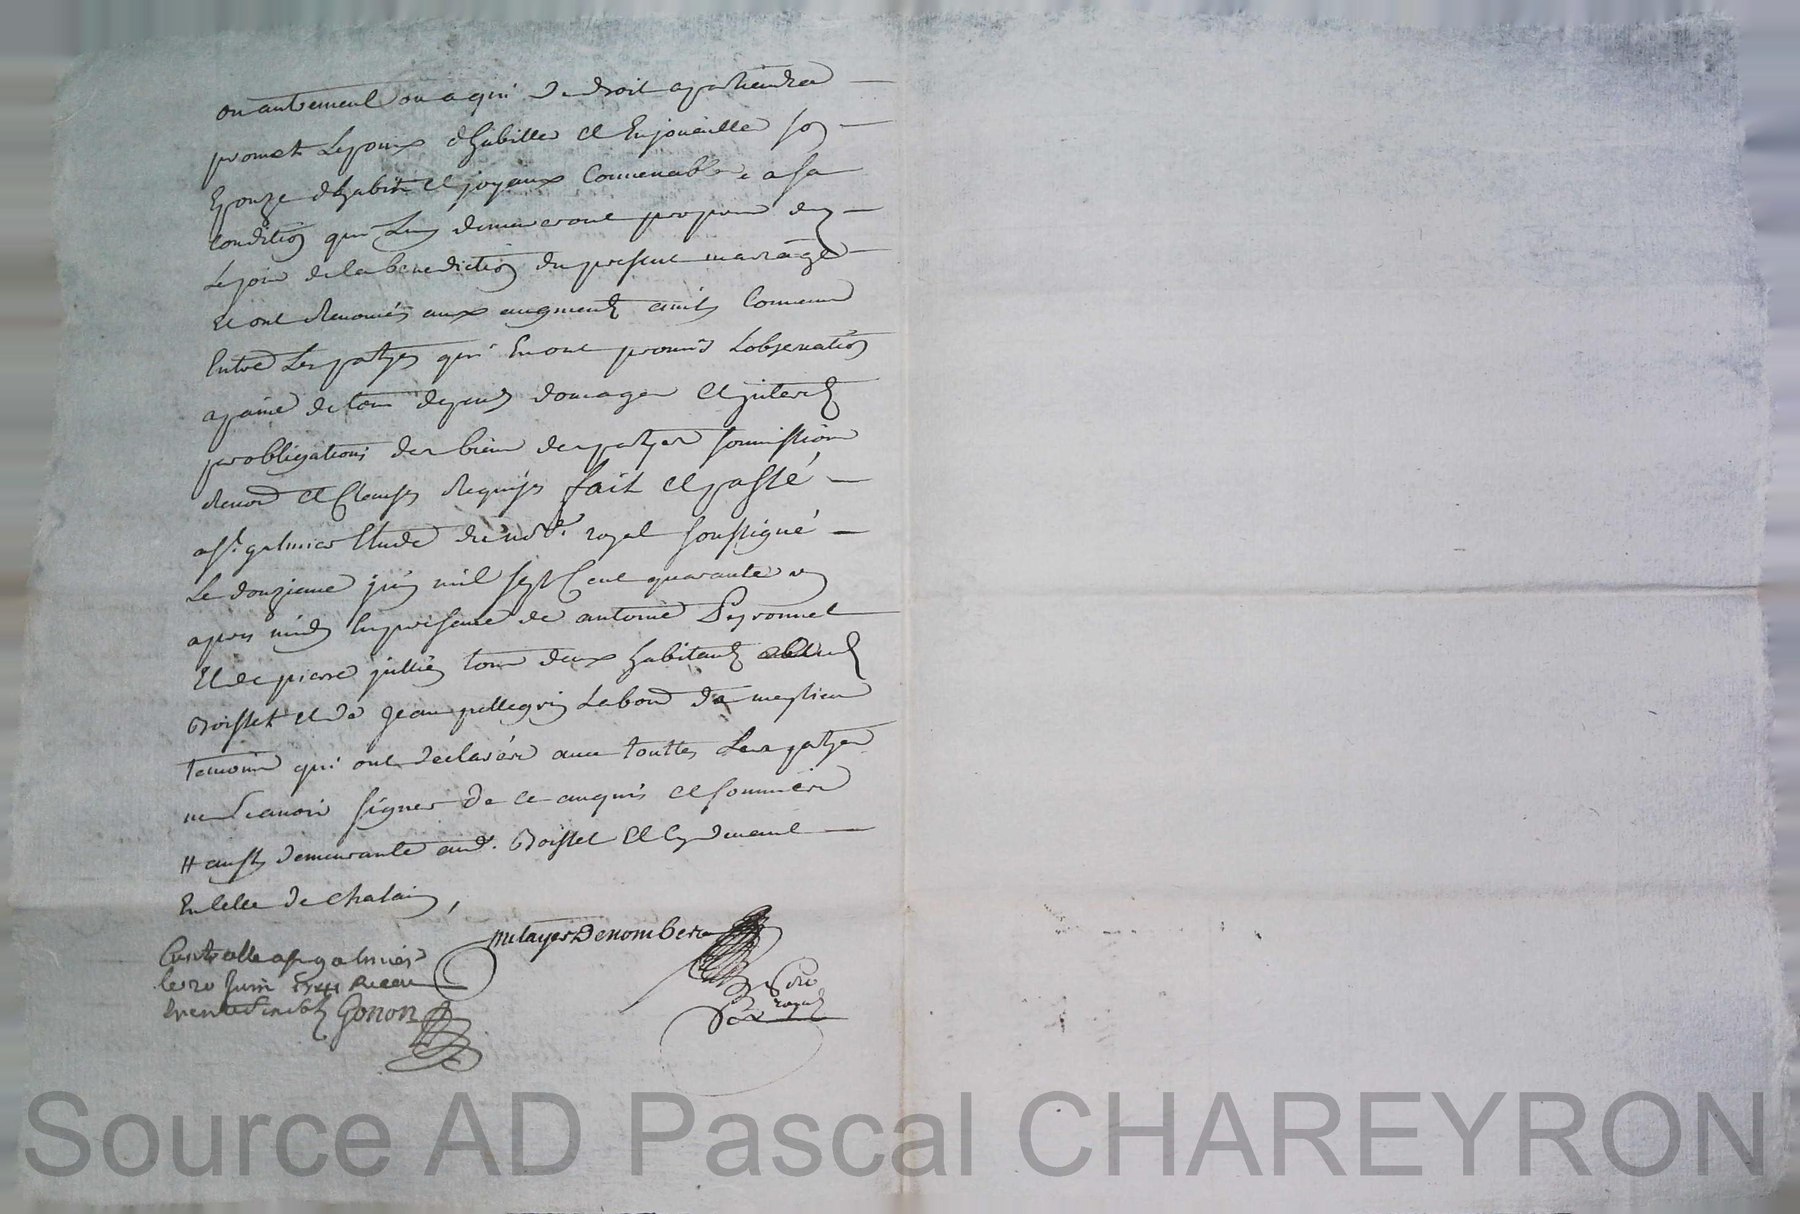 ou autrement ou a qui de droit apartiendra
promet Lepoux dhabiller et Enjoüailler son
Epouze dhabits et joyaux Convenable a sa
condition qui Luy demeureront propres des
Le jour de la benediction du present mariage
Et ont Renoncés aux augments ainsi Convenu
Entre Les partyes qui En ont promis Lobservation
a paine de tous depens domages et juterets
par obligations des biens des partyes soumissions
Renon et Clauses Requises fait et passé
a St. galmier Etude du not.re royal soussigné
Le douzieme juin mil sept Cent quarante un
apres midy En presence de antoine Peyronnet
Et de pierre jullien tous deux habitants
Boisset et de Jean pellegrin Labour de meylieu
Temoins qui ont declarés avec touttes Les partyes
ne sçavoir signer de ce enquis et sommés
# aussy demeurante aud. Boisset et cy devant
En celle de chalain,
mlayer Denombera
No.re royal
Controllé a St galmier
le 20 Juin 1741 Receu
trente Gonon
Source AD Pascal CHAREYRON